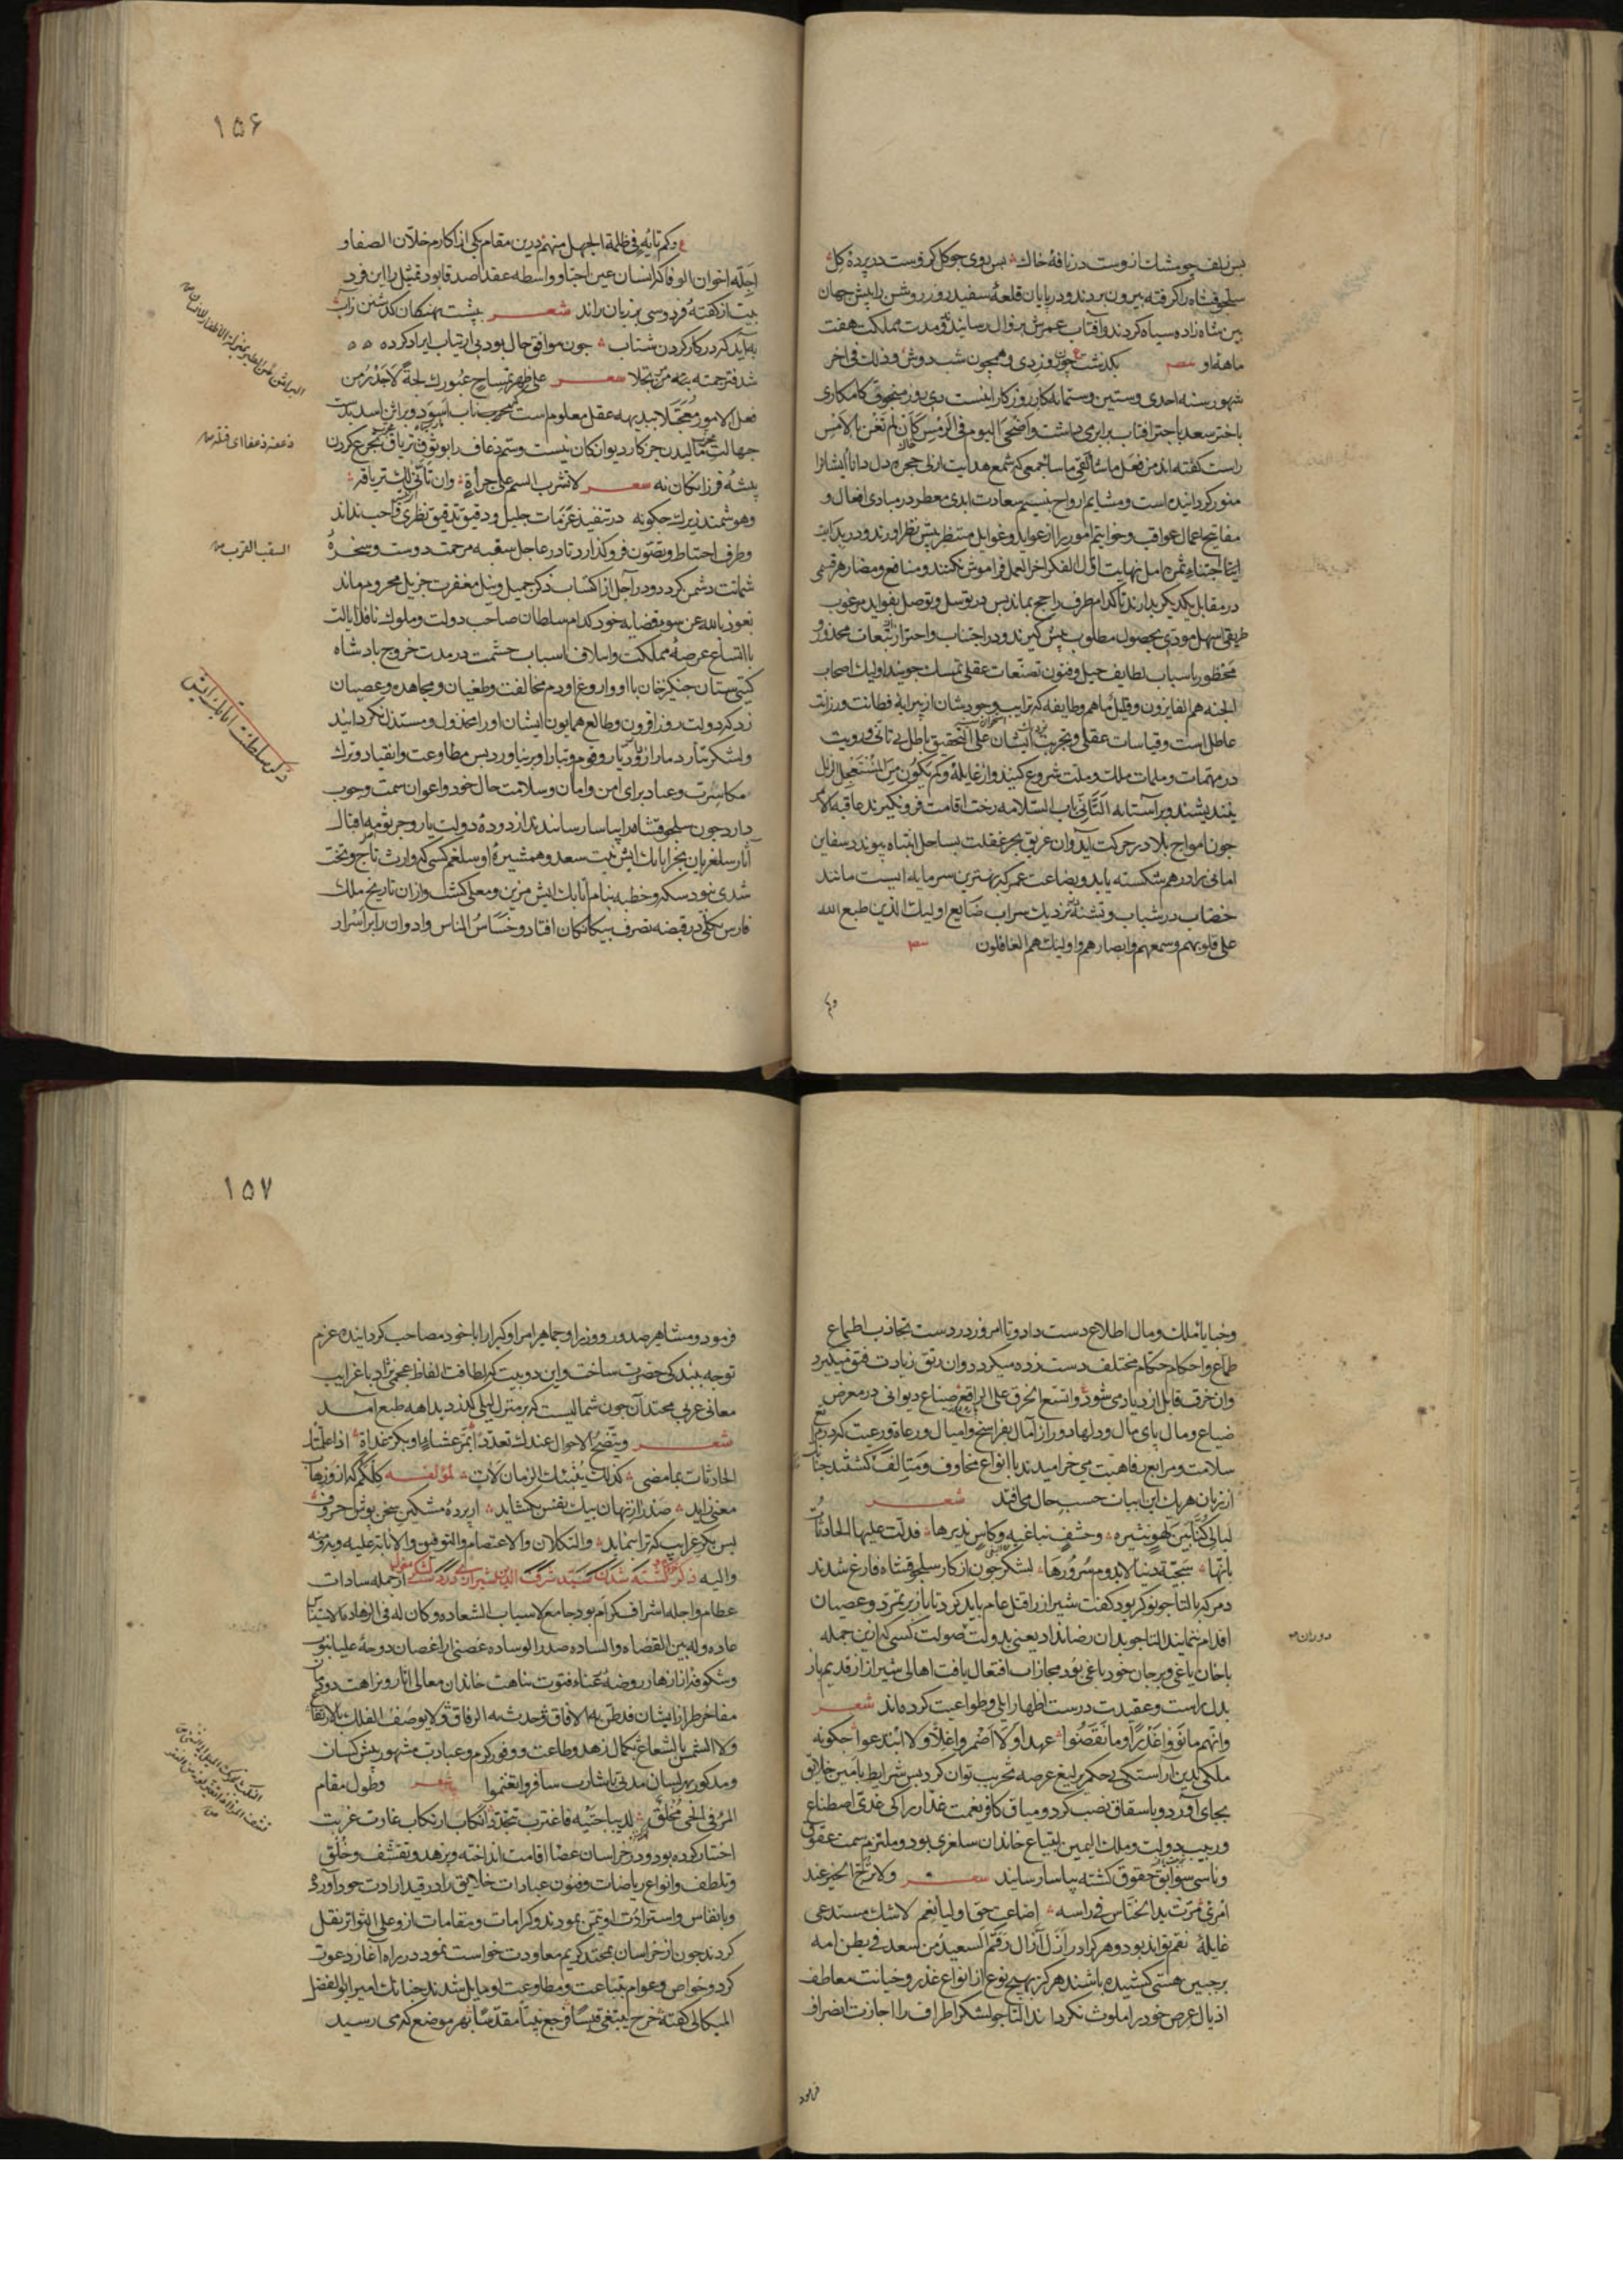 بس زلف چو مشک از وست در نافهٔ خاک بس روی چو گل کزوست در پردهٔ گل
سلجوقشاه را گرفته بیرون بردند و در پایان قلعهٔ سفید روز روشن را پیش جهان
بین شاه زاده سیاه کردند و آفتاب عمرش بزوال رسانید و مدت مملکت هفت
ماهه او مصر بگذشت چون وزدی و همچون شب دوش و ذلک فی اخر
شهور سنه احدی و ستین و ستمائه کار روزگار اینست دی روز منجوق کامکاری
باختر سعد با جرافتاب برابر می داشت و اضحی الیوم فی الرمس کان لم تغن بالامس
راست کفته اند من فعل ما شا لقی ما سا جمعی که شمع هدایت ازلی حجرهٔ دل دانا ایشانرا
منور کردانیده است و مشام ارواح بنسیم سعادت ابدی معطر در مبادی افعال و
مفاتیح اعمال عواقب و خواتیم امور را از عواید و غوایل منتظر پیش نظر اورند و در بدایت
اجتناء ثمر امل نهایت اول الفکر اخر العمل فراموش نکنند و منافع و مضار هر قسمی
در مقابل یکدیکر بدارند تا کدام طرف راجح بماند پس در توسل و توصل بفواید مرغوب
طریقی اسهل مودی بحصول مطلوب پیش کیرند و در اجتناب و احتراز از تبعات محذور و
محظور باسباب لطایف حیل و فنون تصنعات عقلی تمسک جویند اولیک اصحاب
الجنه هم الفایزون و قلیل ما هم و طایفه که ترایب وجودشان از پیرایهٔ فطانت و رزانت
عاطل است و قیاسات عقلی و تجربت ایشان علی التحقیق باطل بی تانی و رویت
در مهمات و ملمات ملک و ملت شروع کنند و از غایلهٔ و کم یکون من المستعجل الزلل
نیندیشند و بر آستانه التانی باب السلامه رخت اقامت فرو نکیرند عاقبه الامر
چون امواج بلا در حرکت آید و ان غریق بحر غفلت بساحل انتباه پیوندد سفاین
امانی را در هم شکسته یابد و بضاعت عمر که بهترین سرمایه ایست مانند
خضاب در شباب و تشنه نزدیک سراب ضایع اولیک الذین طبع الله
علی قلوبهم و سمعهم و ابصارهم و اولیک هم الغافلون
وکم
۱۵۶
وکم تایه فی ظلمة الجهل منهم درین مقام یکی از اکارم خلان الصفا و
اجلّه اخوان الوفا که انسان عین احبا و واسطه عقد اصدقا بود تمثل را این فرد
بیت از کفتهٔ فردوسی بر زبان راند شعر بپشت نهنکان کذشتن زآب
به آید که در کار کردن شتاب چون موافق حال بود بی ارتیاب ایراد کرده
شد فترجمته بیته مرتجلا شعر علی ظهر تمساح عبورک لجة لاجدر من
فعل الامور معجلا ببدیهه عقل معلوم است که بحریت ناب اسود و براثن اسد بدست
جهالت مالیدن جز کار دیوانکان نیست و سم ذعاف را بوثوق تریاق تجرع کردن
پیشهٔ فرزانکان نه شعر لا تشرب السم علی جراة وان تاتی لک تریاقه
و هوشمند زیرک چکونه در تنفیذ عزمات جلیل و دقیق تدقیق نظری واجب نداند
و طرف احتیاط و تصون فرو کذارد تا در عاجل سغبه مرحمت دوست و سخرهٔ
شماتت دشمن کردد و در آجل از اکتساب ذکر جمیل و نیل مغفرت جزیل محروم ماند
نعوذ بالله عن سوء قضایه خود کدام سلطان صاحب دولت و ملوک نافذ ایالت
با اتساع عرصهٔ مملکت و اسلاف اسباب حشمت در مدت خروج پادشاه
کیتی ستان جنکیز خان با او و اروغ او دم مخالفت و طغیان و مجاهده و عصیان
زد که دولت روز افزون و طالع همایون ایشان اورا مخذول و مستذل نکردانید
و لشکر تتار دمار از دیار و قوم و تبار او بر نیاورد پس مطاوعت و انقیاد و ترک
مکاسرت و عناد برای امن و امان و سلامت حال خود و اعوان سمت وجوب
دارد چون سلجوقشاه را بیاسا رسانیدند از دودهٔ دولت یار و جرثومه اقبال
آثار سلغریان بجز اتابک ابش بنت سعد و همشیرهٔ او سلغم کسی که وارث تاج و تخت
شدی نبود سکه و خطبه بنام اتابک ابش مزین و معلی کشت و از ان تاریخ ملک
فارس بکلی در قبضه تصرف بیکانکان افتاد و خساس الناس و ادوان را بر اسرار
ذعفه ذعفا ای قتله
السقب القرب
ذکر سلطنت اتابک ابش
و خبایا ملک و مال اطلاع دست داد و تا امروز در دست تجاذب اطماع
طماع و احکام حکام مختلف دست زده میکردد وان رتق زیادت فتق میکیرد
وان خرق قابل ازدیاد می شود و اتسع الخرق علی الراقع ضیاع دیوانی در معرض
ضیاع و مال پای مال و دلها دور از آمال بفراسخ و امیال و رعاة و رعیت که در مراتع
سلامت و مرابع رفاهیت می خرامیدند با انواع مخاوف و متالف کشتند چنانک
از زبان هر یک این ابیات حسب حال می افتد شعر
لیالی کنا بین لهو نثیره و خشف نباغیه و کاس ندیرها فدلت علیها الحادثات
بانها سجیة دنیا لا یدوم سرورها لشکر چون از کار سلجوقشاه فارغ شدند
دمر که با التاجو نوکر بود کفت شیراز را قتل عام باید کرد تا باز بر تمرد و عصیان
اقدام ننمایند التاجو بدان رضا نداد یعنی بدولت صولت کسی که ازین جمله
با خان یاغی و بر جان خود باغی بود مجازات افتعال یافت اهالی شیراز از قدیم باز
بدل راست و عقیدت درست اظهار ایلی و طواعیت کرده اند شعر
وانهم ما نووا غدرا و ما نقضوا عهدا و لا اضمروا غلا و لا ابتدعوا چکونه
ملکی بدین آراستکی بحکم یرلیغ عرصه تخریب توان کرد پس شرایط یامین خلایق
بجای آورد و باسقاق نصب کرد و میاق کافر نعمت غدار را کی غذی اصطناع
و ربیب دولت و ملک الیمین ابتیاع خاندان سلغری بود و ملتزم سمت عقوق
و ناسی سوابق حقوق کشته بیاسا رسانید شعر ولا ترتج الخیر عند
امری مرت ید النخاس فی راسه اضاعت حق اولیا نعم لاشک مستدعی
غایلهٔ نقم تواند بود و هر کرا در ازل آزال رقم السعید من سعد فی بطن امه
بر جبین هستی کشیده باشند هرکز بهیچ نوع از انواع غدر و خیانت معاطف
اذیال عرض خود را ملوث نکرداند التاجو لشکر اطراف را اجازت انصراف
دوران
فرمود
۱۵۷
فرمود و مشاهیر صدور و وزرا و جماهیر امرا و کبرا را با خود مصاحب کردانیده عزم
توجه ببندکی حضرت ساخت و این دو بیت که لطافت الفاظ عجمی نژاد با غرایب
معانی عربی محتد آن چون شمالیست که بر منزل لیلی کذرد بداهه طبع آمد
شعر و یتضح الاحوال عندک تعددا بمر عشایا و بکر غداة اذا علمتک
الحادثات بما مضی کذلک ینبئک الزمان لات لمؤلفه کلکم که از و زهاب
معنی زاید صد راز نهان بیک نفس بکشاید از پردهٔ مشکین سخن پوش حروف
بس بکر غرایب که ترا بنماید و التکلان و الاعتصام و التوفیق و الانابة علیه و به و منه
والیه ذکر خروج و کشته شدن سید شرف الدین شیرازی در دست لشکر مغول از جمله سادات
عظام و اجله اشراف کرام بود جامع لاسباب السعاده و کان له فی الزهاده لا یستناس
عاده وله بین القضاه و الساده صدر الوساده غصنی از اغصان دوحهٔ علیا نبوت
و شکوفهٔ از ازهار روضهٔ غناء فتوت نباهت خاندان معالی اثار و نزاهت دودمان
مفاخر طراز ایشان قد طن به الافاق و حدث به الرفاق و لا یوصف الفلک بالارتفاع
ولا الشمس بالشعاع بکمال زهد و طاعت و وفور کرم و عبادت مشهور پیش کسان
و مذکور بهر لسان مدتی باشارت سافروا تغنموا شعر و طول مقام
المرء فی الحی مخلق لدیباجتیه فاغترب تتجدد ارتکاب غارب غربت
اختیار کرده بود و در خراسان عصا اقامت انداخته و بزهد و تقشف و خلق
و تلطف و انواع ریاضات و فنون عبادات خلایق را در قید ارادت خود آورد
و بانفاس و استرادت او تیمن نمودند و کرامات و مقامات از و علی التواتر نقل
کردند چون از خراسان بمحتد کریم معاودت خواست نمود در راه آغاز دعوت
کرد و خواص و عوام بتباعت و مطاوعت او مایل شدند چنانک امیر ابو الفضل
المیکالی کفته خرج یبتغی قبسا فرجع نبیا مقدسا بهر موضع که می رسید